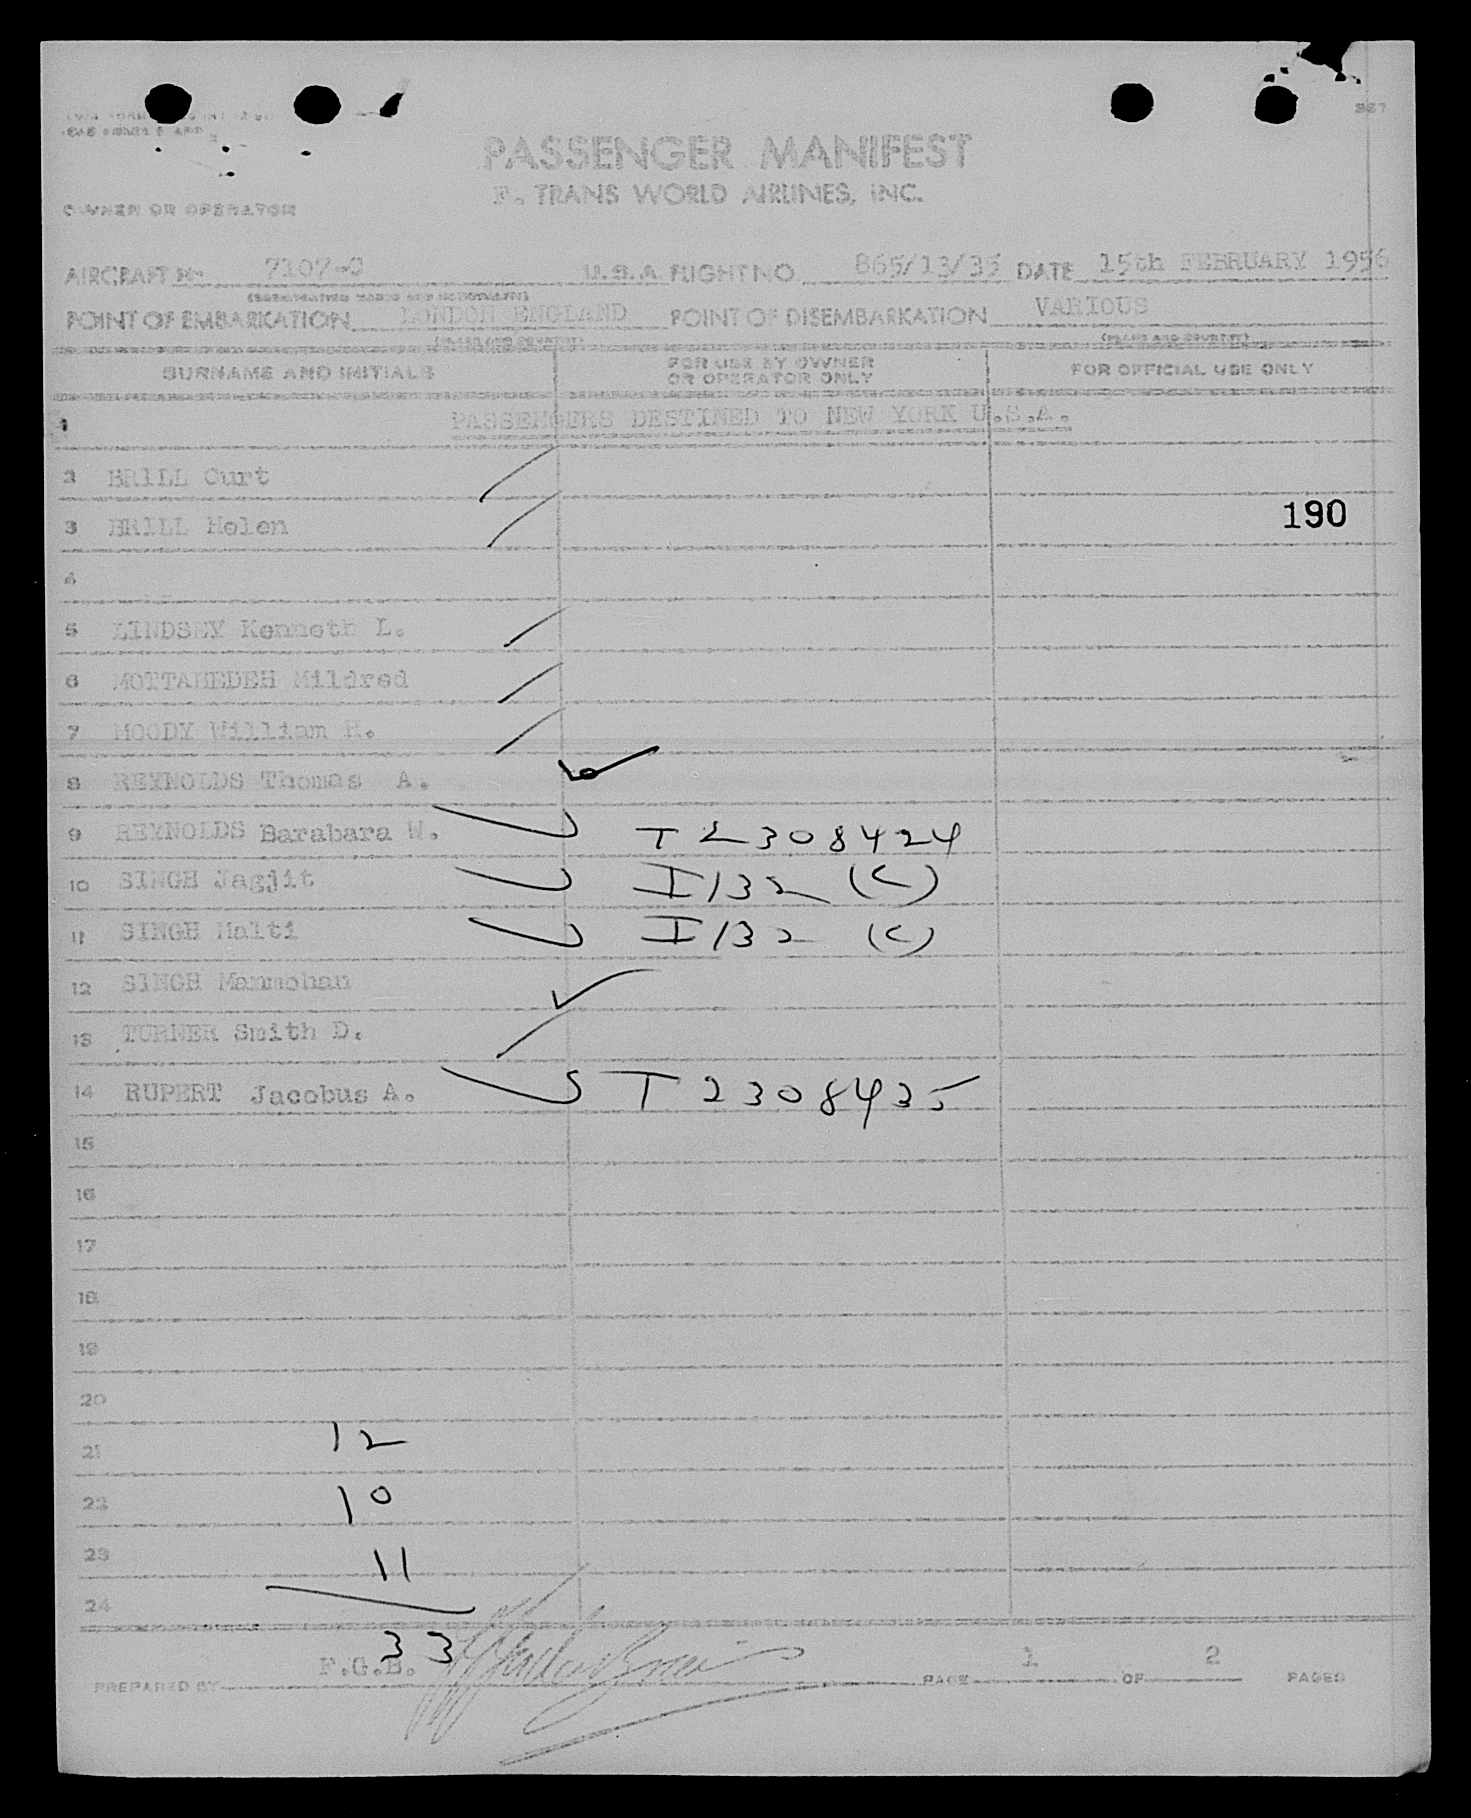 367
PASSENGER MANIFEST
F. TRANS WORLD AIRLINES, INC.
OWNER OR OPERATOR
AIRCRAFT No. 7107-C U.S.A. FLIGHT NO. 865/13/35 DATE 15th FEBRUARY 1956
POINT OF EMBARKATION LONDON ENGLAND POINT OF DISEMBARKATION VARIOUS
(PLACE AND COUNTRY) (PLACE AND COUNTRY)
SURNAME AND INITIALS FOR USE BY OWNER OR OPERATOR ONLY FOR OFFICIAL USE ONLY
1 PASSENGERS DESTINED TO NEW YORK U.S.A.
2 BRILL Curt
3 BRILL Helen 190
4
5 LINDSEY Kenneth L.
6 MOTTAHEDEH Mildred
7 MOODY William H.
8 REYNOLDS Thomas A.
9 REYNOLDS Barabara W. T 2308424
10 SINGH Jagjit I/132 (C)
11 SINGH Malti I/132 (C)
12 SINGH Manmohan
13 TURNER Smith D.
14 RUPERT Jacobus A. T 2308435
15
16
17
18
19
20
21 12
22 10
23 11
24
33
PREPARED BY F.G.B. PAGE 1 OF 2 PAGES